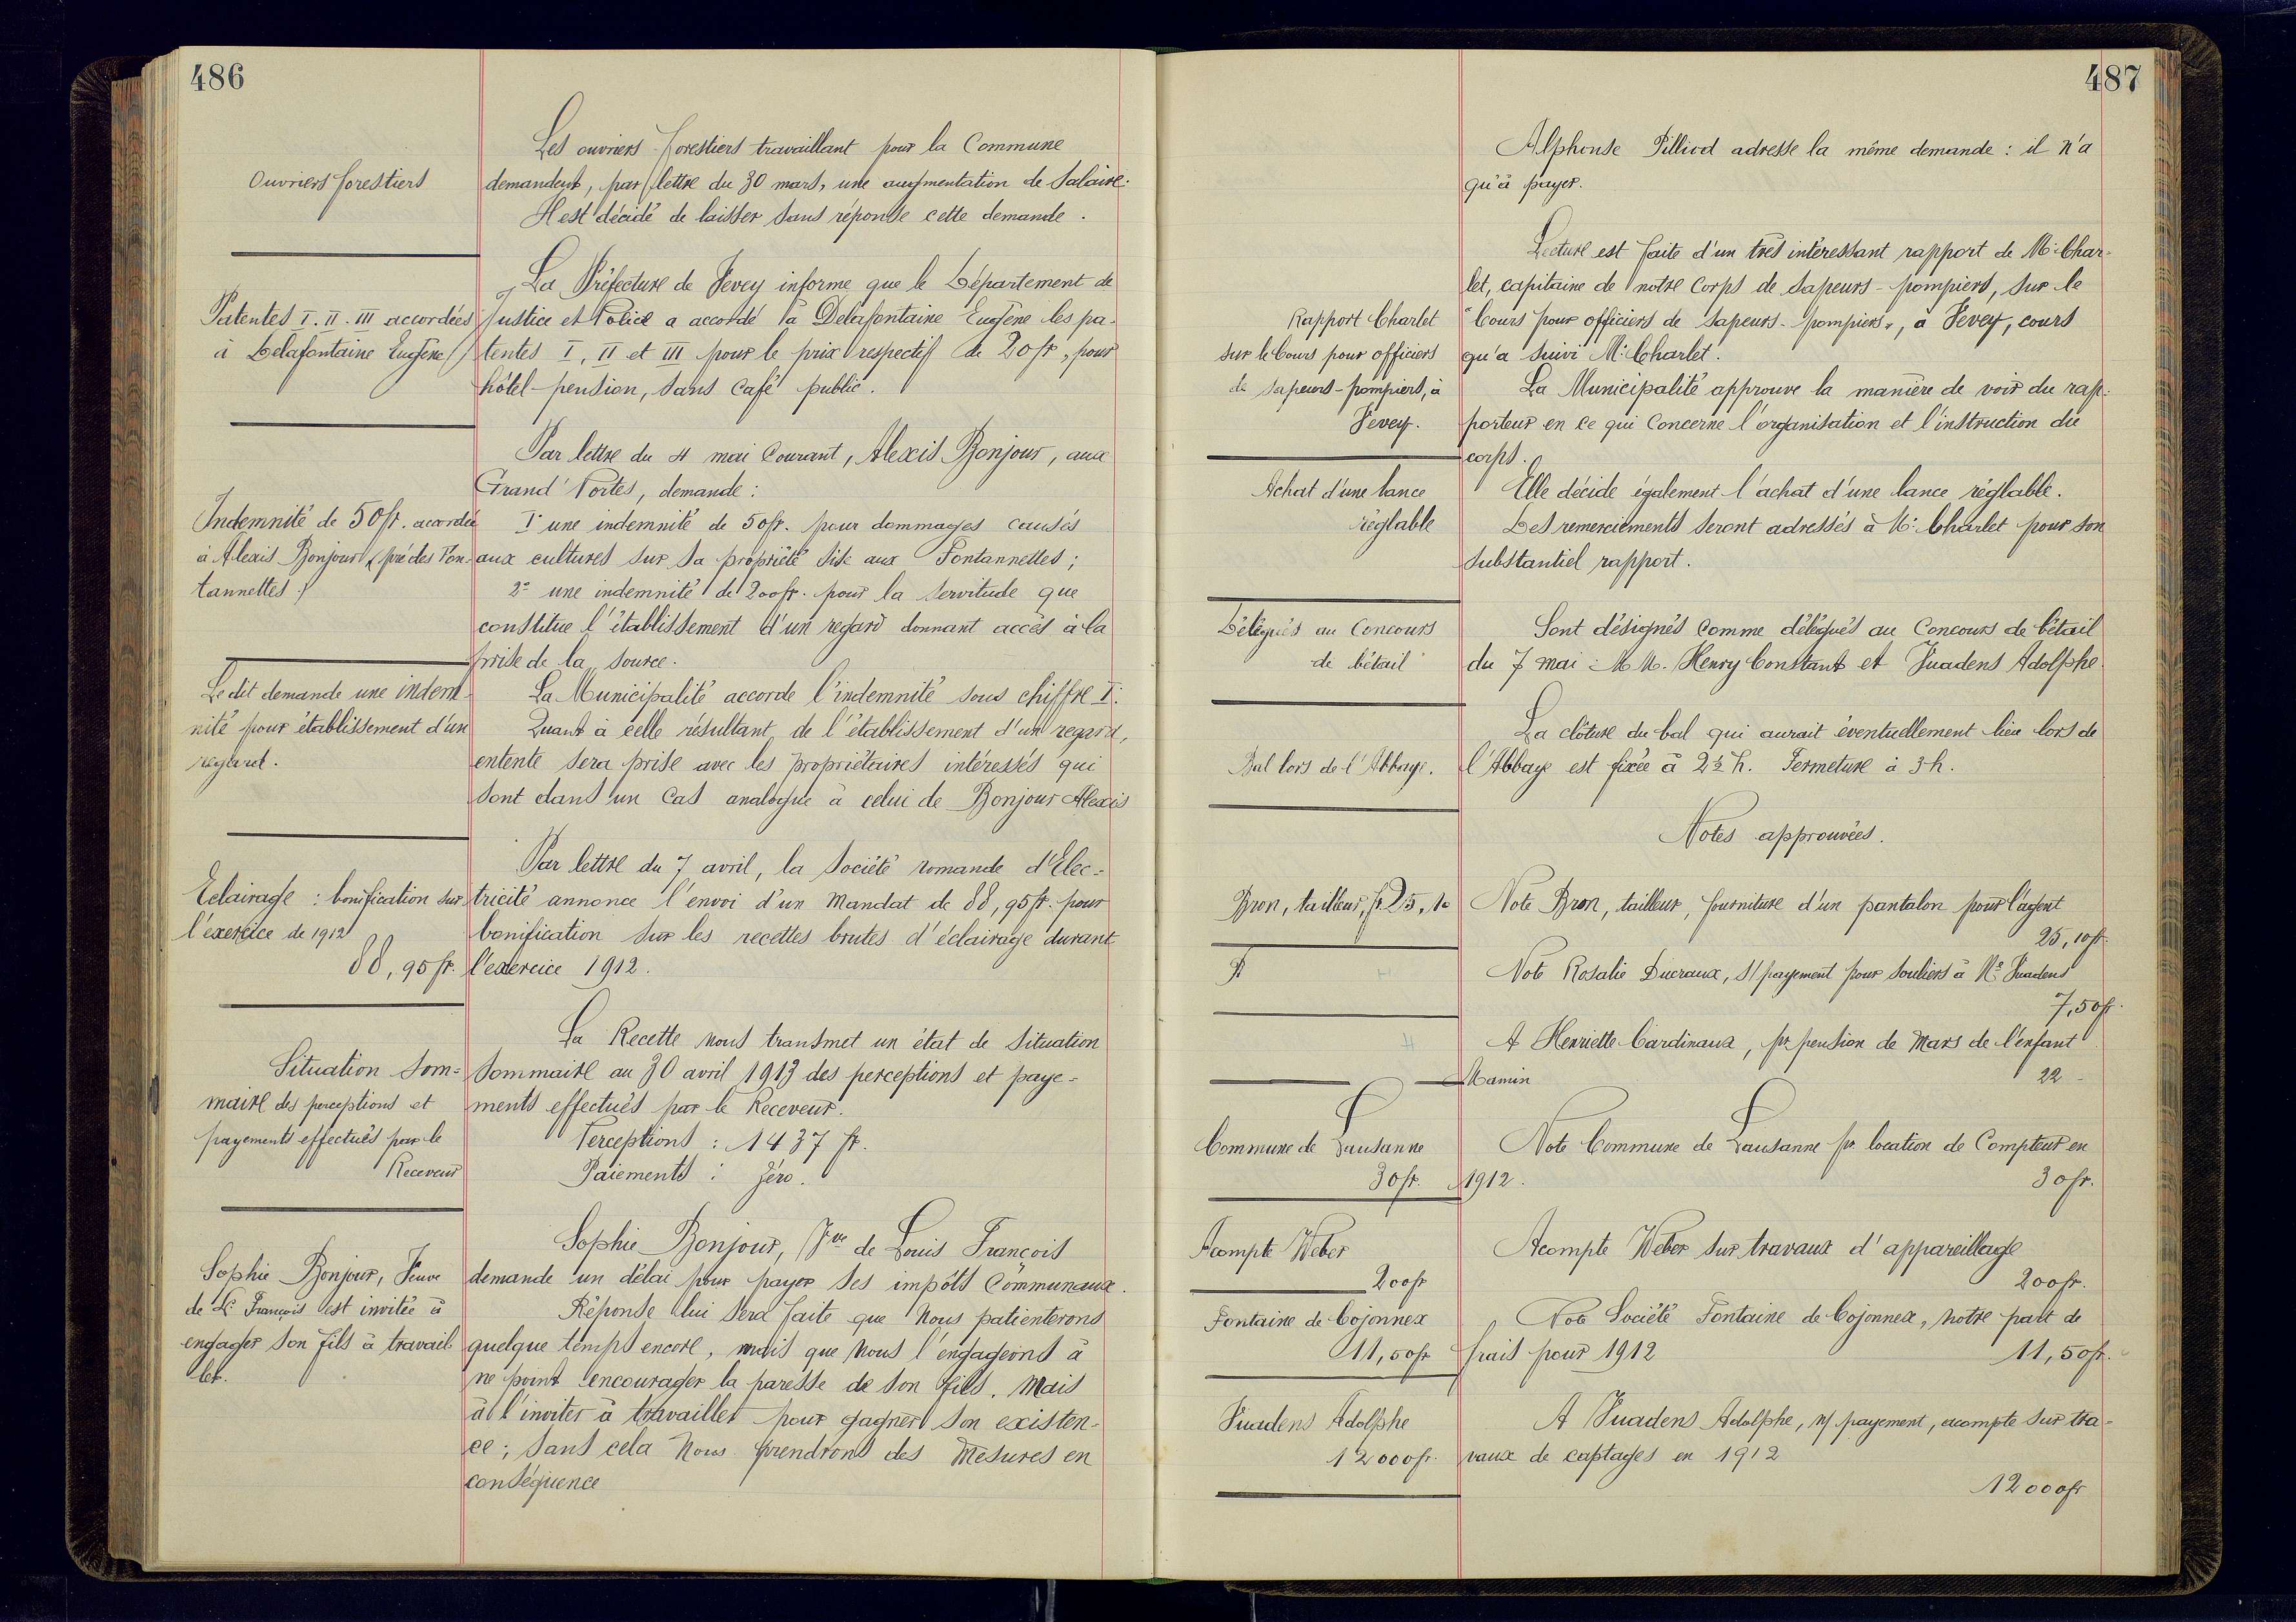 486
Ouvriers forestiers
Les ouvriers forestiers travaillant pour la Commune
demandent, par lettre du 30 mars, une augmentation de Salaire.
Il est décidé de laisser sans réponse cette demande.
Patentes I. II. III accordées
à Delafontaine Eugène
La Préfecture de Vevey informe que le Département de
Justice et Police a accordé à Delafontaine Eugène les pa-
tentes I, II et III pour le prix respectif de 20 fr, pour
hôtel-pension, sans Café public.
Indemnité de 50 fr. accordée
à Alexis Bonjour (pré des Fon-
tannettes)
Par lettre du 4 mai Courant, Alexis Bonjour, aux
Grand' Portes, demande :
I° une indemnité de 50 fr. pour dommages causés
aux cultures sur sa propriété sise aux Fontannettes ;
2° une indemnité de 200 fr. pour la servitude que
constitue l'établissement d'un regard donnant accès à la
prise de la source.
Le dit demande une indem-
nité pour établissement d'un
regard.
La Municipalité accorde l'indemnité sous chiffre I.
Quant à celle résultant de l'établissement d'un regard,
entente sera prise avec les propriétaires intéressés qui
sont dans un Cas analogue à celui de Bonjour Alexis
Eclairage : bonification sur
l'exercice de 1912
88,95 fr.
Par lettre du 7 avril, la Société romande d'Elec-
tricité annonce l'envoi d'un Mandat de 88,95 fr. pour
bonification sur les recettes brutes d'éclairage durant
l'exercice 1912.
Situation Som-
maire des perceptions et
payements effectués par le
Receveur
La Recette nous transmet un état de Situation
Sommaire au 30 avril 1913 des perceptions et paye-
ments effectués par le Receveur.
Perceptions : 1437 fr.
Paiements : Zéro.
Sophie Bonjour, Veuve
de Ls François est invitée à
engager son fils à travail
ler.
Sophie Bonjour, Vve de Louis François
demande un délai pour payer ses impôts Communaux.
Réponse lui sera faite que Nous patienterons
quelque temps encore, mais que Nous l'engageons à
ne point encourager la paresse de son fils, Mais
à l'inviter à travailler pour gagner son existen-
ce ; sans cela Nous prendrons des Mesures en
conséquence
487
Alphonse Pilliod adresse la même demande : il n'a
qu'à payer.
Rapport Charlet
sur le Cours pour officiers
de sapeurs-pompiers, à
Vevey.
Lecture est faite d'un très intéressant rapport de Mr Char-
let, capitaine de notre Corps de Sapeurs-pompiers, sur le
"Cours pour officiers de Sapeurs-pompiers", à Vevey, cours
qu'a suivi Mr Charlet.
La Municipalité approuve la manière de voir du rap-
porteur en ce qui Concerne l'organisation et l'instruction du
corps.
Achat d'une lance
réglable
Elle décide également l'achat d'une lance réglable.
Des remerciements seront adressés à Mr Charlet pour son
substantiel rapport.
Délégués au Concours
de bétail
Sont désignés Comme délégués au Concours de bétail
du 7 mai : M.M. Henry Constant et Vuadens Adolphe
Bal lors de l'Abbaye.
La clôture du bal qui aurait éventuellement lieu lors de
l'Abbaye est fixée à 2½ h. Fermeture à 3 h.
Notes approuvées.
Bron, tailleur, fr 25,10
Note Bron, tailleur, fourniture d'un pantalon pour l'agent
25,10 fr.
Note Rosalie Ducraux, s/ payement pour souliers à Vuadens
7,50 fr.
A Henriette Cardinaux, pr pension de Mars de l'enfant
Mamin 22 -
Commune de Lausanne
30 fr.
Note Commune de Lausanne pr location de Compteur en
1912. 30 fr.
Acompte Weber
200 fr
Acompte Weber sur travaux d'appareillage
200 fr.
Fontaine de Cojonnex
11,50 fr
Note Société Fontaine de Cojonnex, notre part de
frais pour 1912 11,50 fr.
Vuadens Adolphe
12000 fr.
A Vuadens Adolphe, n/ payement, acompte sur tra-
vaux de captages en 1912
12000 fr